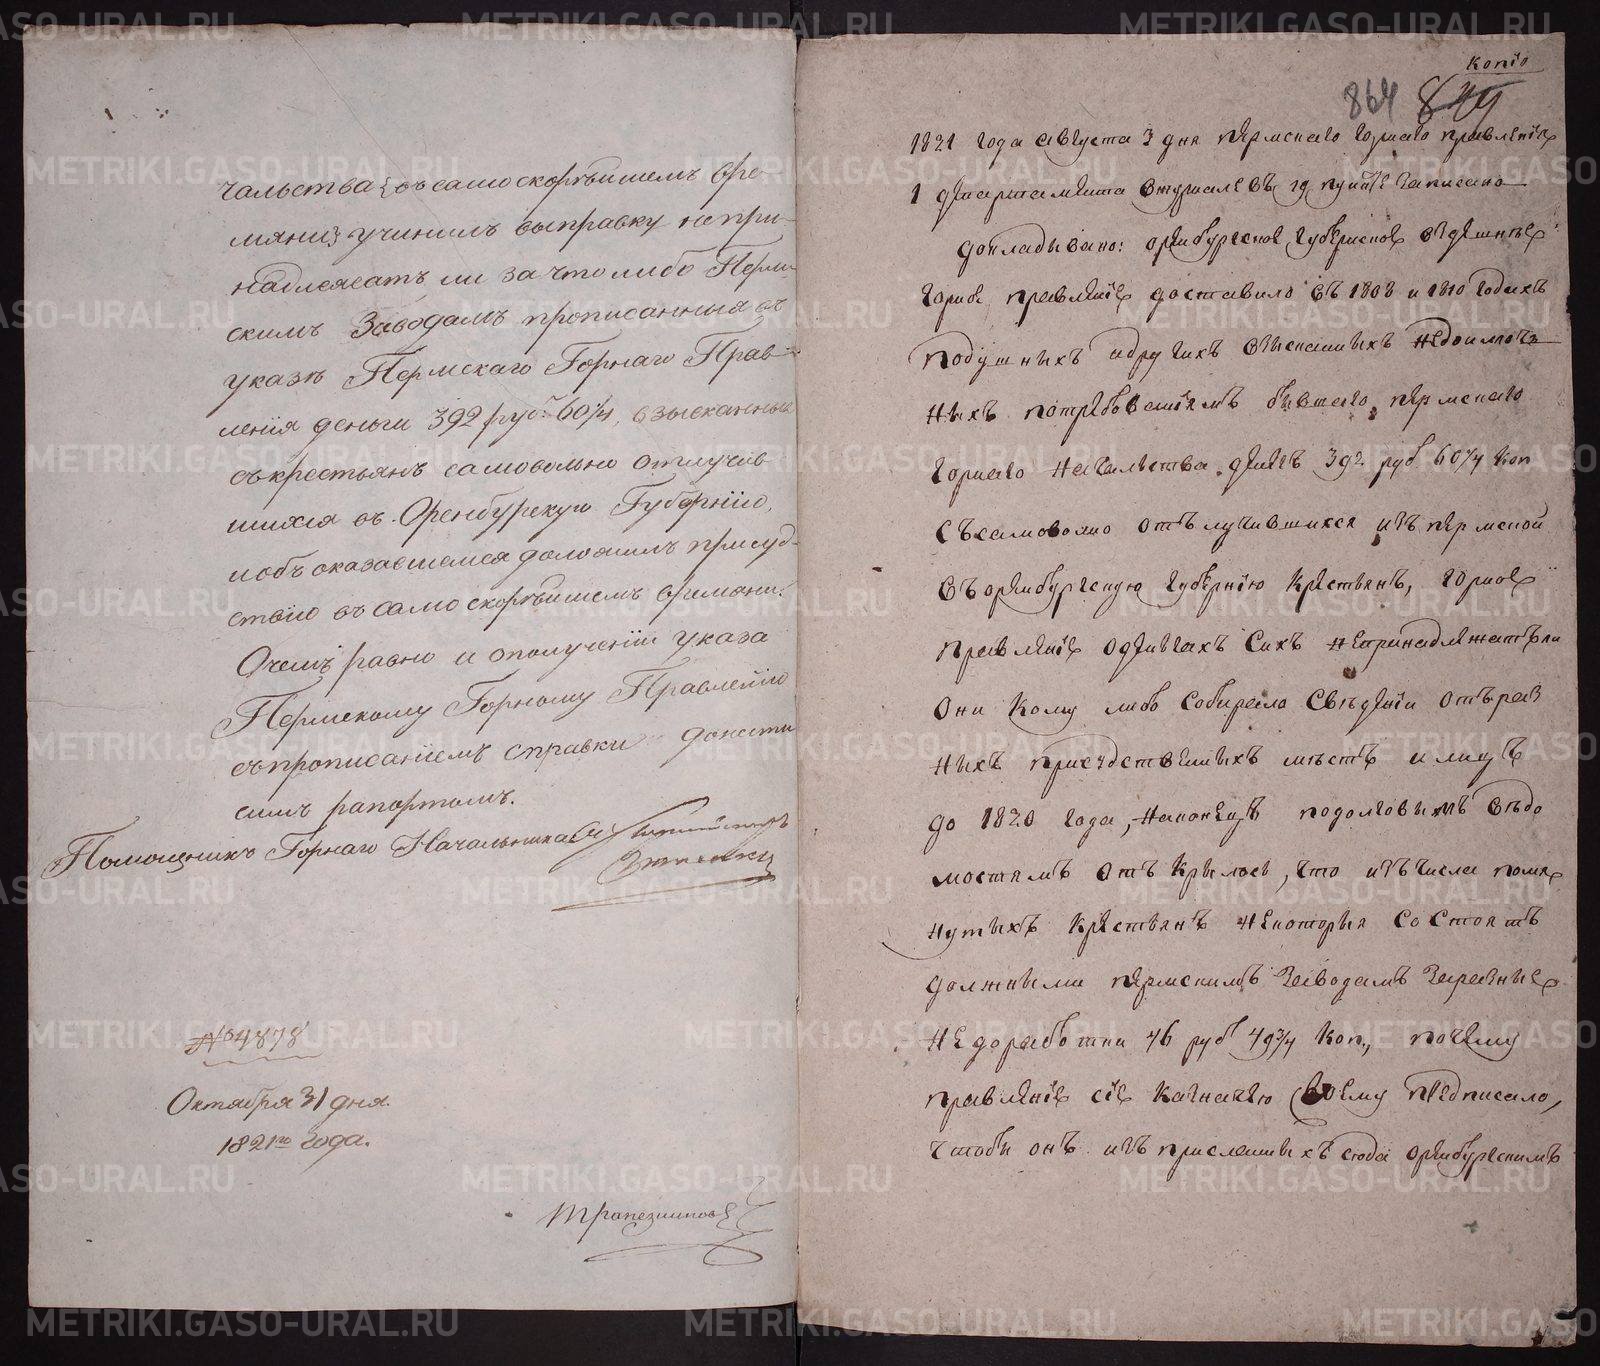 чальства въ самоскорѣйшемъ вре-
мяни учинить выправку не при-
надлежатъ ли за что либо Перм-
скимъ Заводамъ прописанныя въ
указѣ Пермскаго Горнаго Прав-
ленія деньги 392 руб. 60¼, взысканныя
съ крестьянъ самовольно отлучив-
шихся въ Оренбурскую Губернію,
и объ оказавшемся доложить присуд-
ствію въ самоскорѣйшемъ времяни.
О чемъ равно и о полученіи указа
Пермскому Горному Правленію
съ прописаніемъ справки донести
симъ рапортомъ.
Помощникъ Горнаго Начальника
№ 4878
Октября 31 дня
1821го года.
Трапезниковъ
Копїо
864 844
1821 года августа 3 дня пермскаго горнаго правленія
1 департамента въ журналѣ въ 19 пунктѣ записано
докладывано: оренбургское губернское здѣшнее
горное правленіе доставило въ 1808 и 1810 годахъ
подушныхъ и другихъ взысканныхъ недоимоч
ныхъ по требованіямъ бывшаго пермскаго
горнаго начальства денегъ 392 руб 60¼ коп
съ самовольно отълучившихся изъ пермской
въ оренбургскую губернію крестьянъ, горное
правленіе о деньгахъ сихъ не принадлежатъ ли
они кому либо собирало свѣденіи отъ раз
ныхъ присудственныхъ мѣстъ и лицъ
до 1820 года, наконецъ по долговымъ вѣдо
мостямъ открылось, что изъ числа помя
нутыхъ крестьянъ некоторыя состоятъ
должными пермскимъ заводамъ за разные
недоработки 46 руб 49¾ коп, почему
правленіе сіе казначею своему предписало,
чтобы онъ изъ присланныхъ сюда оренбургскимъ
METRIKI.GASO-URAL.RU